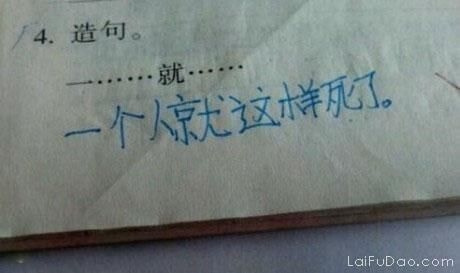 4. 造句。
一……就……
一个人就这样死了。
LaiFuDao.com